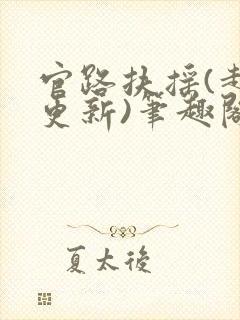 官路扶摇(
更新)笔趣
夏太後